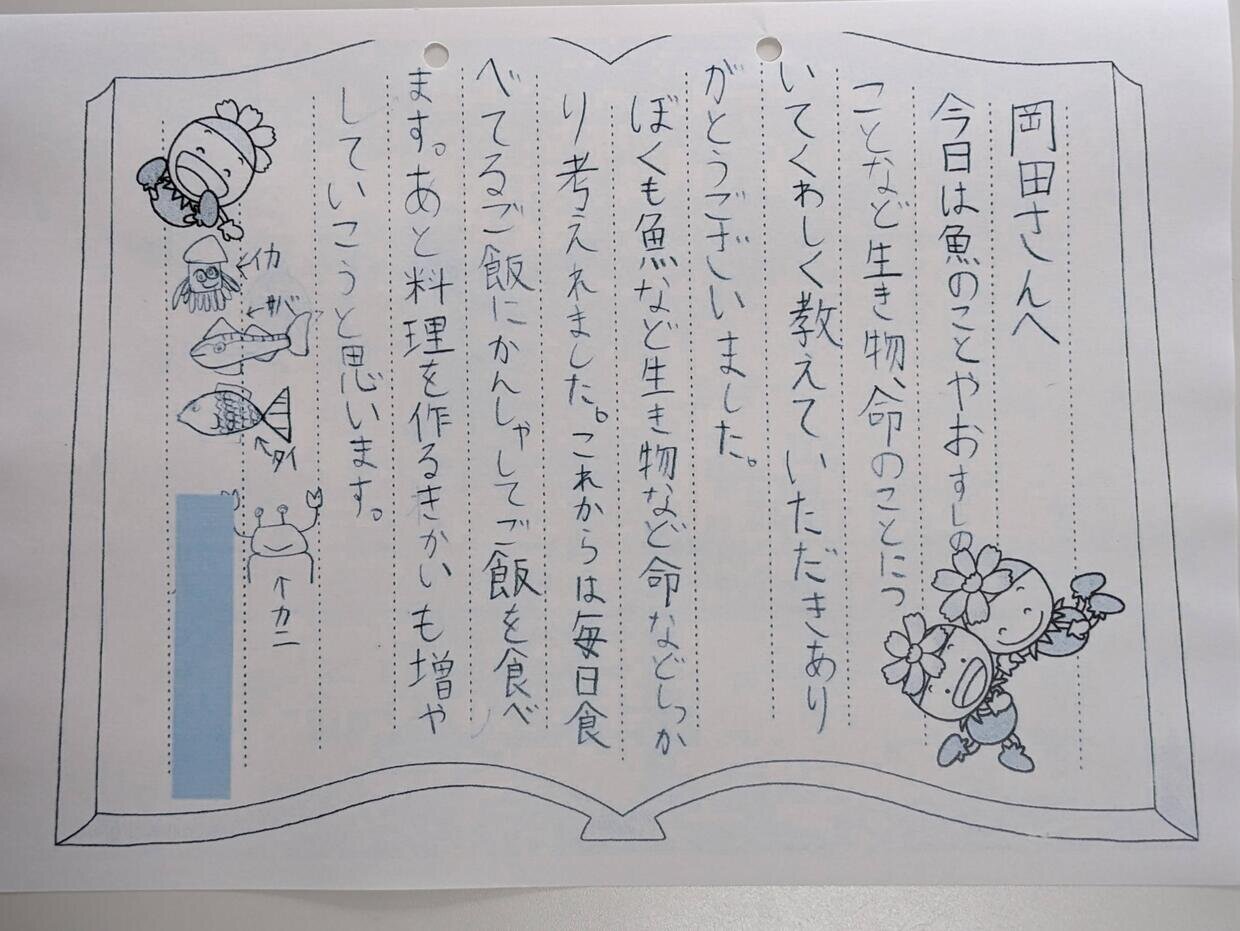 岡田さんへ
今日は魚のことやおすしの
ことなど生き物、命のことにつ
いてくわしく教えていただきあり
がとうございました。
ぼくも魚など生き物など命などしっか
り考えれました。これからは毎日食
べてるご飯にかんしゃしてご飯を食べ
ます。あと料理を作るきかいも増や
していこうと思います。
イカ
サバ
タイ
カニ